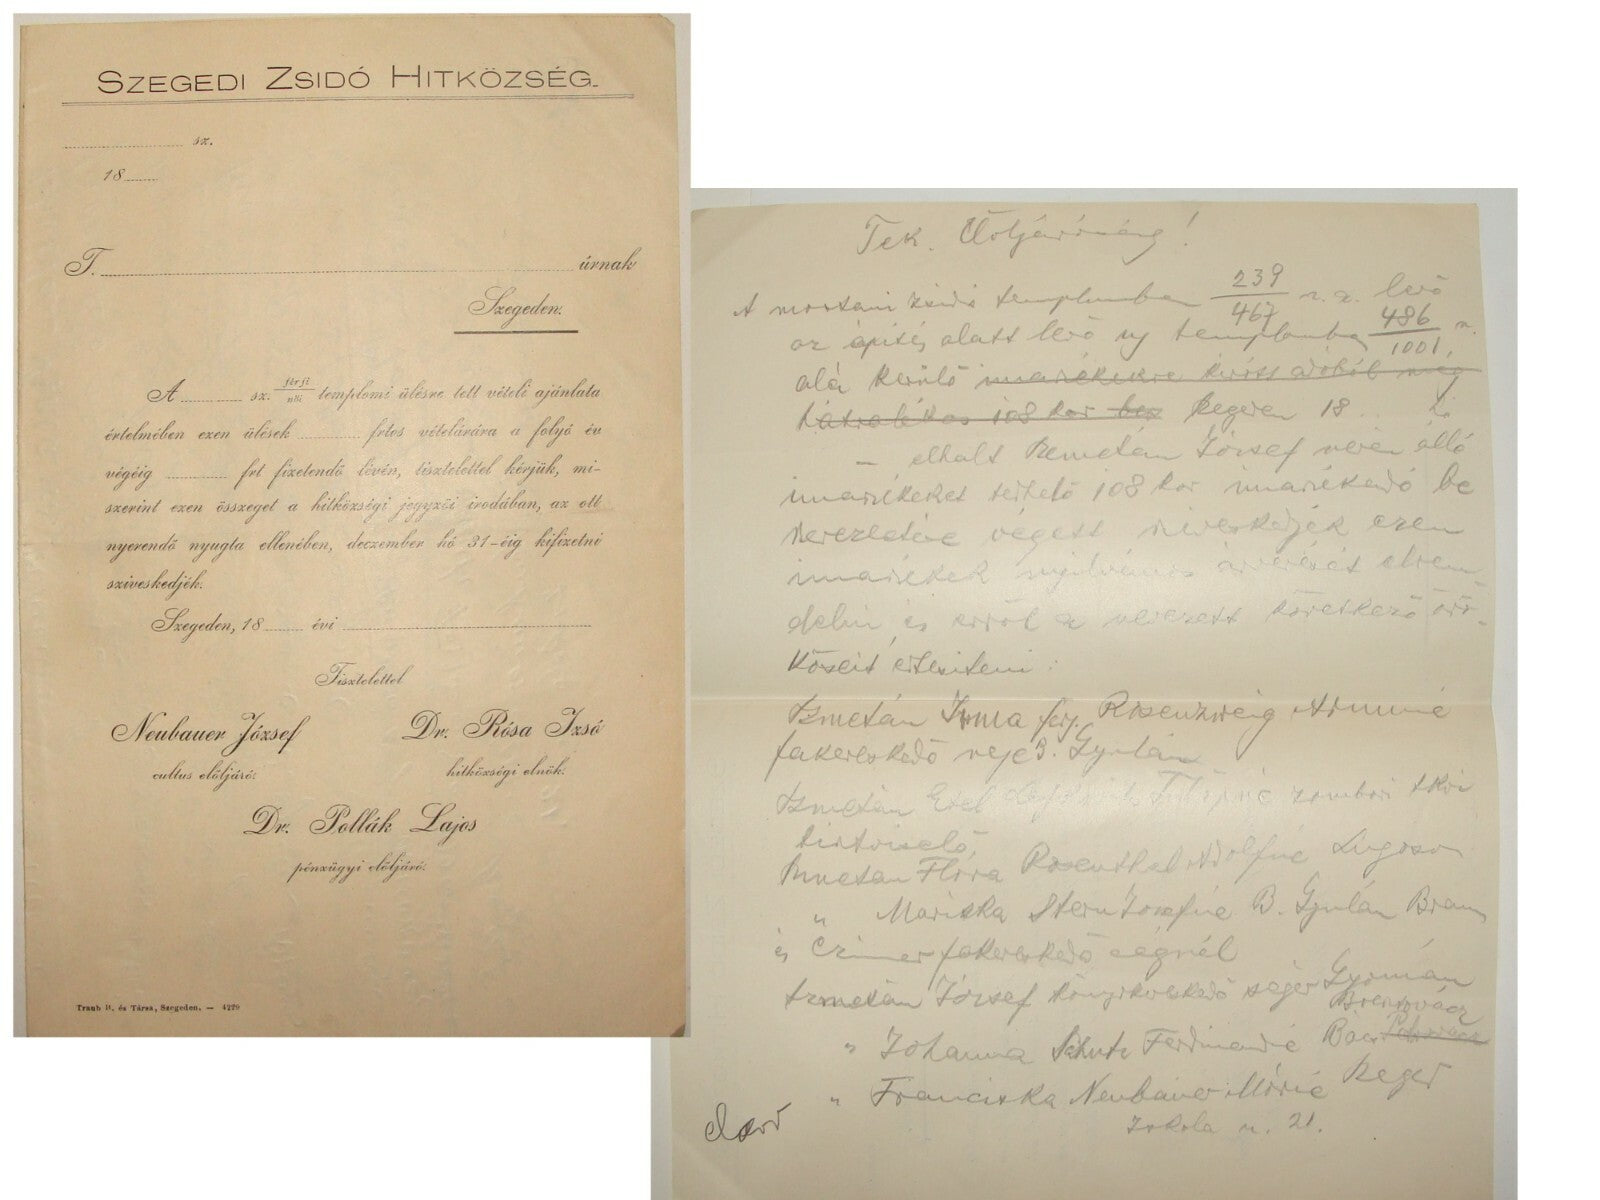 SZEGEDI ZSIDÓ HITKÖZSÉG.
sz.
18
T. úrnak
Szegeden.
A sz. férfi női templomi ülésre tett vételi ajánlata
értelmében ezen ülések frtos vételárára a folyó év
végéig frt fizetendő lévén, tisztelettel kérjük, mi-
szerint ezen összeget a hitközségi jegyzői irodában, az ott
nyerendő nyugta ellenében, deczember hó 31-éig kifizetni
sziveskedjék.
Szegeden, 18 évi
Tisztelettel
Neubauer József
cultus előljáró.
Dr. Rósa Izsó
hitközségi elnök.
Dr. Pollák Lajos
pénzügyi előljáró.
Traub B. és Társa, Szegeden. — 4229
Tek. Előljáróság!
A mostani zsidó templomban 239/467 sz. levő
az épités alatt levő uj templomba 486/1001
alá kerülő
108 kor Szegeden 18..
elhalt József nevén álló
imaszékeket terhelő 108 kor imaszékadó be
végett sziveskedjék ezen
imaszékek nyilvános árverését elren-
delni és erről a nevezett következő örö-
köseit értesiteni:
Irma férj. Rosenzweig Arminné
fakereskedő neje B. Gyulán
Etel zombori
Flóra Rosenthal Adolfné Lugoson
" Mariska Stern Józsefné B. Gyulán Braun
és Czimer fakereskedő cégnél
József könyvkereskedő segéd
" Johanna Schutz Ferdinandné
" Franciska Neubauer Mórné Szeged
Iskola u. 21.